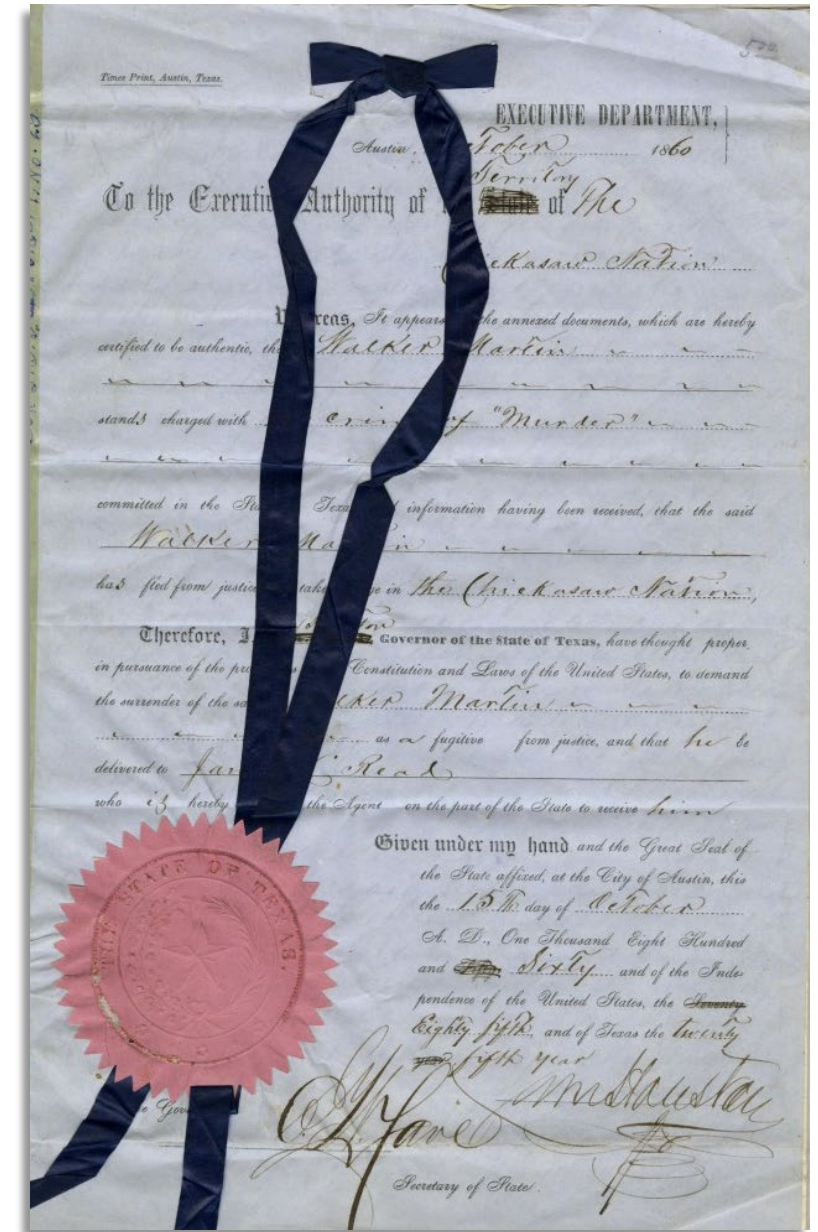 500
Times Print, Austin, Texas.
EXECUTIVE DEPARTMENT,
Austin, tober 1860
Territory
To the Executi Authority of of The
ickasaw Nation
reas, It appears the annexed documents, which are hereby
certified to be authentic, th Walker Martin
stands charged with crim of "Murder"
committed in the Sta Texa information having been received, that the said
Walker Ma in
has fled from justice take ge in the Chickasaw Nation,
Therefore, I Governor of the State of Texas, have thought proper,
in pursuance of the pro s Constitution and Laws of the United States, to demand
the surrender of the sa lker Martin
as a fugitive from justice, and that he be
delivered to Jam Read
who is hereby the Agent on the part of the State to receive him
Given under my hand and the Great Seal of
the State affixed, at the City of Austin, this
the 15th day of October
A. D., One Thousand Eight Hundred
and Sixty and of the Inde-
pendence of the United States, the Seventy
Eighty fifth, and of Texas the twenty
year fifth year
THE STATE OF TEXAS.
Sam Houston
e Gov
Secretary of State.